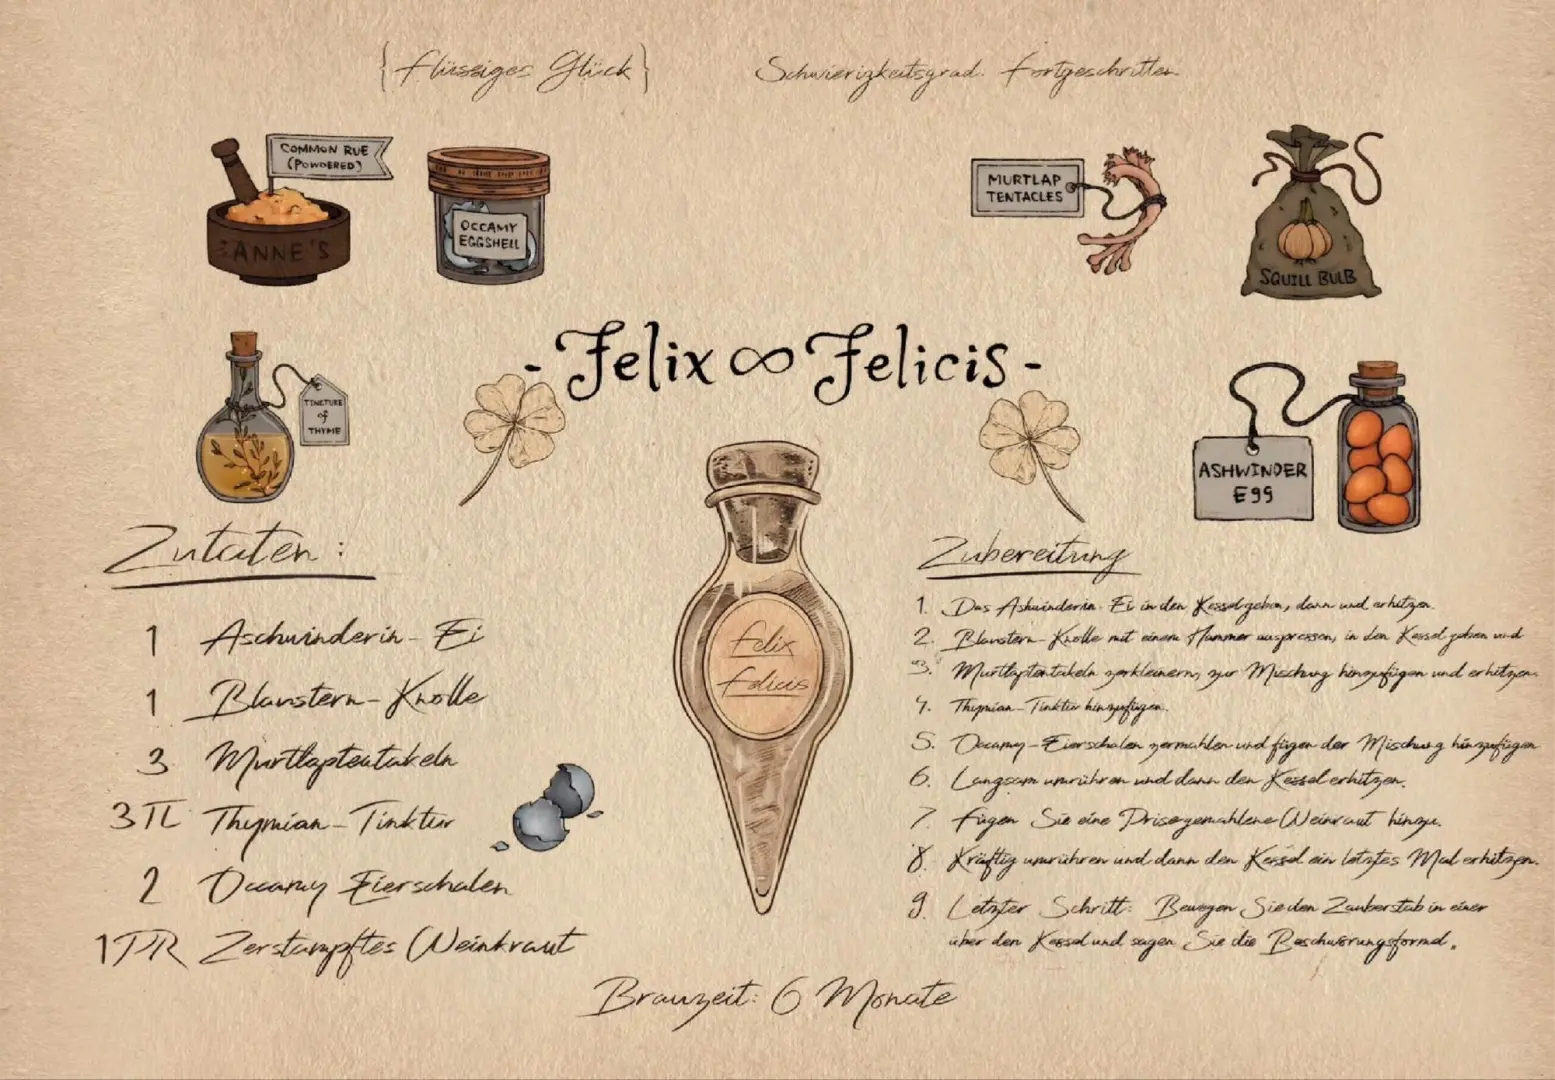 {Flüssiges Glück}
Schwierigkeitsgrad: Fortgeschritten
COMMON RUE
(POWDERED)
ANNE'S
OCCAMY
EGGSHELL
MURTLAP
TENTACLES
SQUILL BULB
- Felix ∞ Felicis -
TINCTURE
of
THYME
ASHWINDER
E99
Zutaten :
1 Aschwinderin-Ei
1 Blaustern-Knolle
3 Murtlaptentakeln
3 TL Thymian-Tinktur
2 Occamy Eierschalen
1 PR Zerstampftes Weinkraut
Felix
Felicis
Zubereitung
1. Das Ashwinderin-Ei in den Kessel geben, dann und erhitzen.
2. Blaustern-Knolle mit einem Hammer auspressen, in den Kessel geben und
3. Murtlaptentakeln zerkleinern, zur Mischung hinzufügen und erhitzen.
4. Thymian-Tinktur hinzufügen.
5. Occamy-Eierschalen zermahlen und fügen der Mischung hinzufügen
6. Langsam umrühren und dann den Kessel erhitzen.
7. Fügen Sie eine Prise gemahlene Weinraut hinzu.
8. Kräftig umrühren und dann den Kessel ein letztes Mal erhitzen.
9. Letzter Schritt: Bewegen Sie den Zauberstab in einer
über den Kessel und sagen Sie die Beschwörungsformel.
Brauzeit: 6 Monate